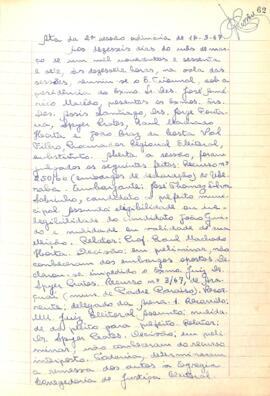 62
Ata da 2ª sessão ordinaria de 17-3-67
Aos dezesseis dias do mês de mar-
ço de um mil novecentos e sessenta
e sete, às dezessete horas, na sala das
sessões, reuniu-se o E. Tribunal, sob a
presidência do Exmo. Sr. Des. José Américo
Macêdo, presentes os Exmos. Srs.
Des. Assis Santiago, Drs. Jorge Fonta-
na, Speyer Pontes, Raul Machado
Horta e João Braz da Costa Val
Filho, Procurador Regional Eleitoral,
substituto. Aberta a sessão, foram
julgados os seguintes feitos: Recurso nº
250/66 (embargos de declaração) de Ube-
raba. Embargante: José Thomaz Silva
Sobrinho, candidato a prefeito muni-
cipal. Assunto: elegibilidade ou ine-
legibilidade do candidato João Gui-
do e nulidade ou validade de sua
eleição. Relator: Prof. Raul Machado
Horta. Decisão: em preliminar, não
conheceram dos embargos opostos. De-
clarou-se impedido o Exmo. Juiz Dr.
Speyer Pontes. Recurso nº 3/67, de
(mun. de Padre Paraíso). Recor-
rente: delegado da Arena. Recorrido:
MM. Juiz Eleitoral. Assunto: nulida-
de do pleito para prefeito. Relator:
Dr. Speyer Pontes. Decisão: em preli-
minar, não conheceram do recurso
interposto. Todavia, determinaram
a remessa dos autos à Egrégia
Corregedoria de Justiça Eleitoral